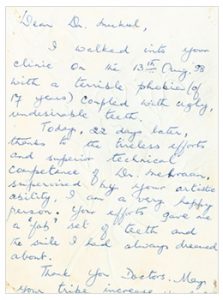 Dear Dr. Mukul,
I walked into your
clinic on the 13th Aug. 98
with a terrible phobia (of
17 years) coupled with ugly,
undesirable teeth.
Today, 22 days later,
thanks to the tireless efforts
and superior technical
competence of Dr. Mehraan,
supervised by your artistic
ability, I am a very happy
person. Your efforts gave me
a "fab" set of teeth and
the smile I had always dreamed
about.
Thank you Doctors. May
your tribe increase